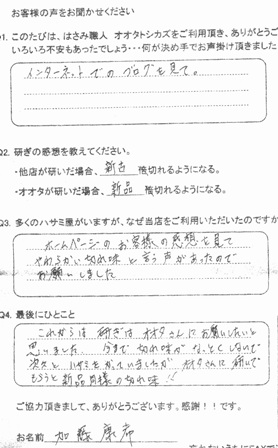 お客様の声をお聞かせください
1. このたびは、はさみ職人 オオタトシカズをご利用頂き、ありがとうご
いろいろ不安もあったでしょう･･･何が決め手でお声掛け頂きました
インターネットでのブログを見て。
Q2. 研ぎの感想を教えてください。
・他店が研いだ場合、 新古 袴切れるようになる。
・オオタが研いだ場合、 新品 袴切れるようになる。
Q3. 多くのハサミ屋がいますが、なぜ当店をご利用いただいたのですか
ホームページのお客様の感想を見て
やわらかい切れ味と言う声があったので
お願いしました
Q4. 最後にひとこと
これからは研ぎはオオタさんにお願いしたいと
思いました 今まで切れ味がなっとくしないで
次々とハサミをかっていましたが オオタさんに研いで
もらうと新品同様の切れ味!!
ご協力頂きまして、ありがとうございます。感謝！！です。
お名前 加藤